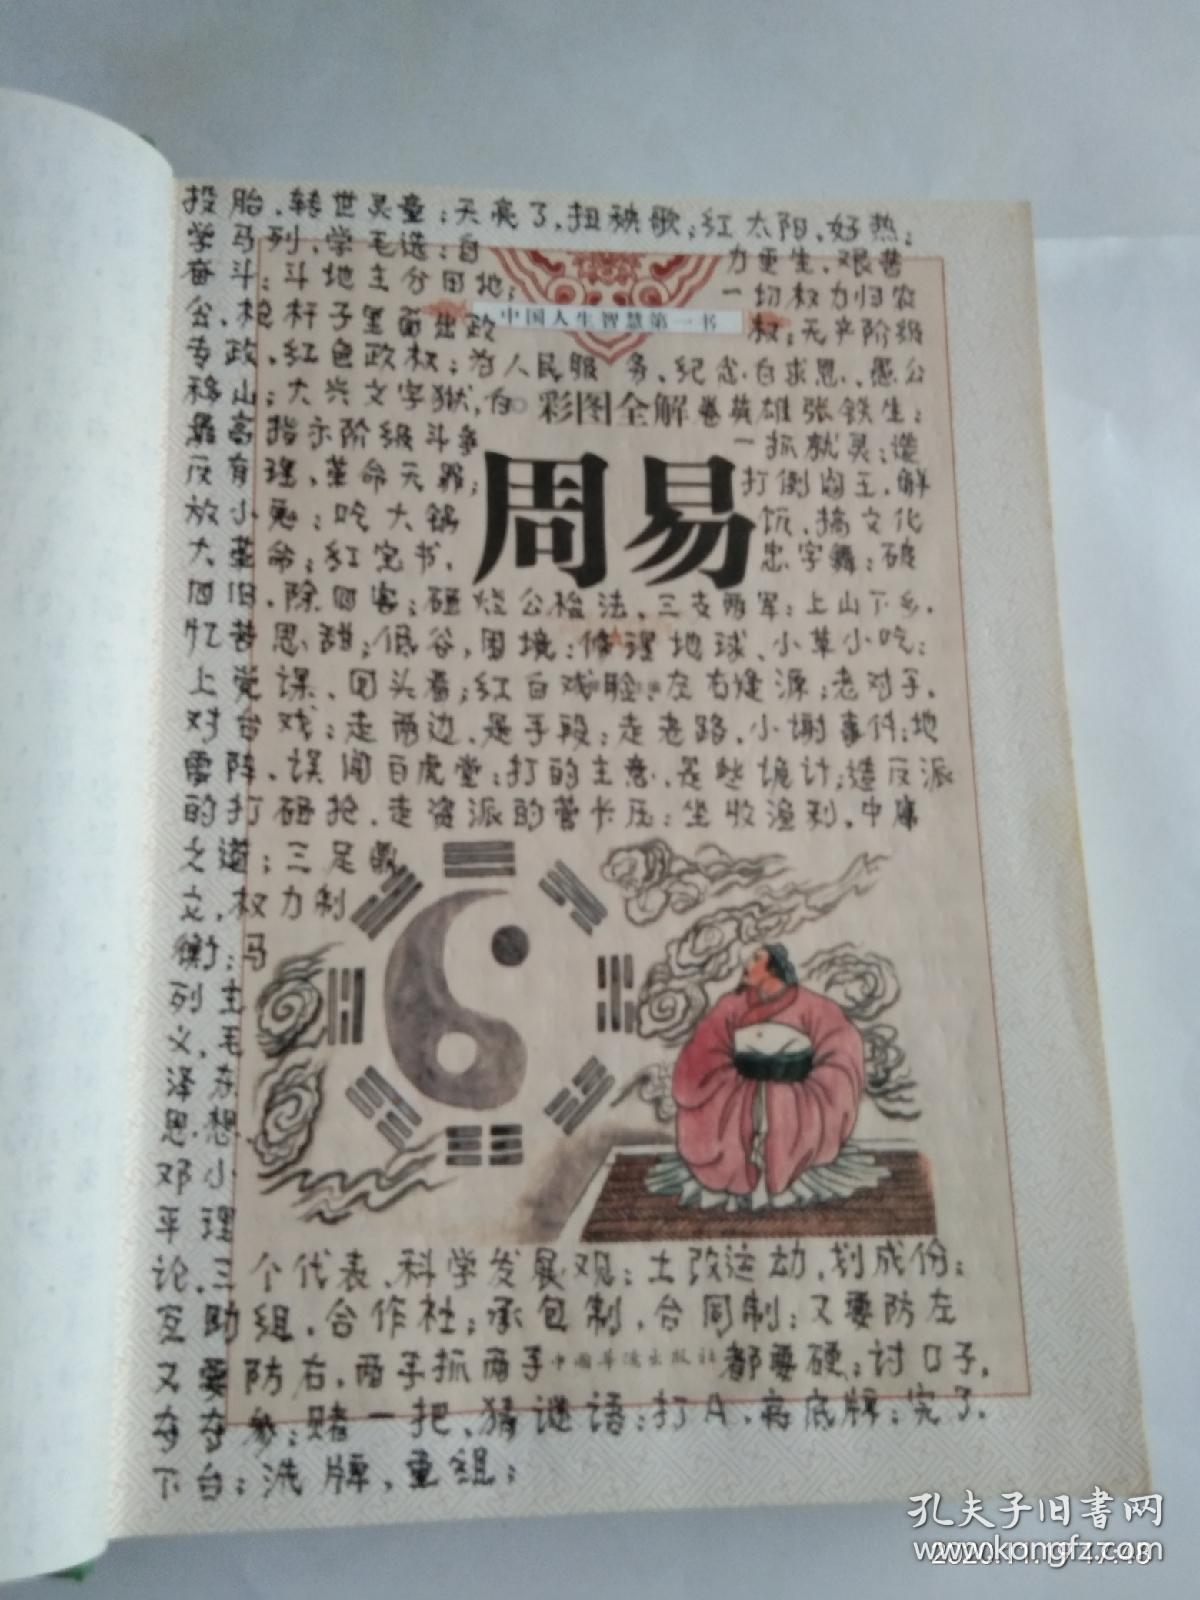 投胎、转世灵童；天亮了、扭秧歌；红太阳、好热；
学马列、学毛选；自力更生、艰苦
奋斗；斗地主分田地；一切权力归农
中国人生智慧第一书
公、枪杆子里面出政权；无产阶级
专政、红色政权；为人民服务、纪念白求恩、愚公
移山；大兴文字狱，白卷英雄张铁生；
彩图全解
最高指示阶级斗争一抓就灵；造
反有理、革命无罪；打倒阎王、解
周易
放小鬼；吃大锅饭、搞文化
大革命；红宝书、忠字舞；破
四旧、除四害；砸烂公检法、三支两军；上山下乡、
忆苦思甜；低谷，困境；修理地球、小草小吃；
上党课、回头看；红白戏脸、左右逢源；老对手、
对台戏；走两边、是手段；走老路、小谢事件；地
雷阵、误闯白虎堂；打的主意、是些诡计；造反派
的打砸抢、走资派的管卡压；坐收渔利、中庸
之道；三足鼎
立，权力制
衡；马
列主
义，毛
泽东
思想、
邓小
平理
论、三个代表、科学发展观；土改运动、划成份；
互助组、合作社；承包制，合同制；又要防左
又要防右，两手抓两手都要硬；讨口子，
中国华侨出版社
赌一把、猜谜语；打A、亮底牌；完了、
下台；洗牌，重组；
孔夫子旧书网
www.kongfz.com